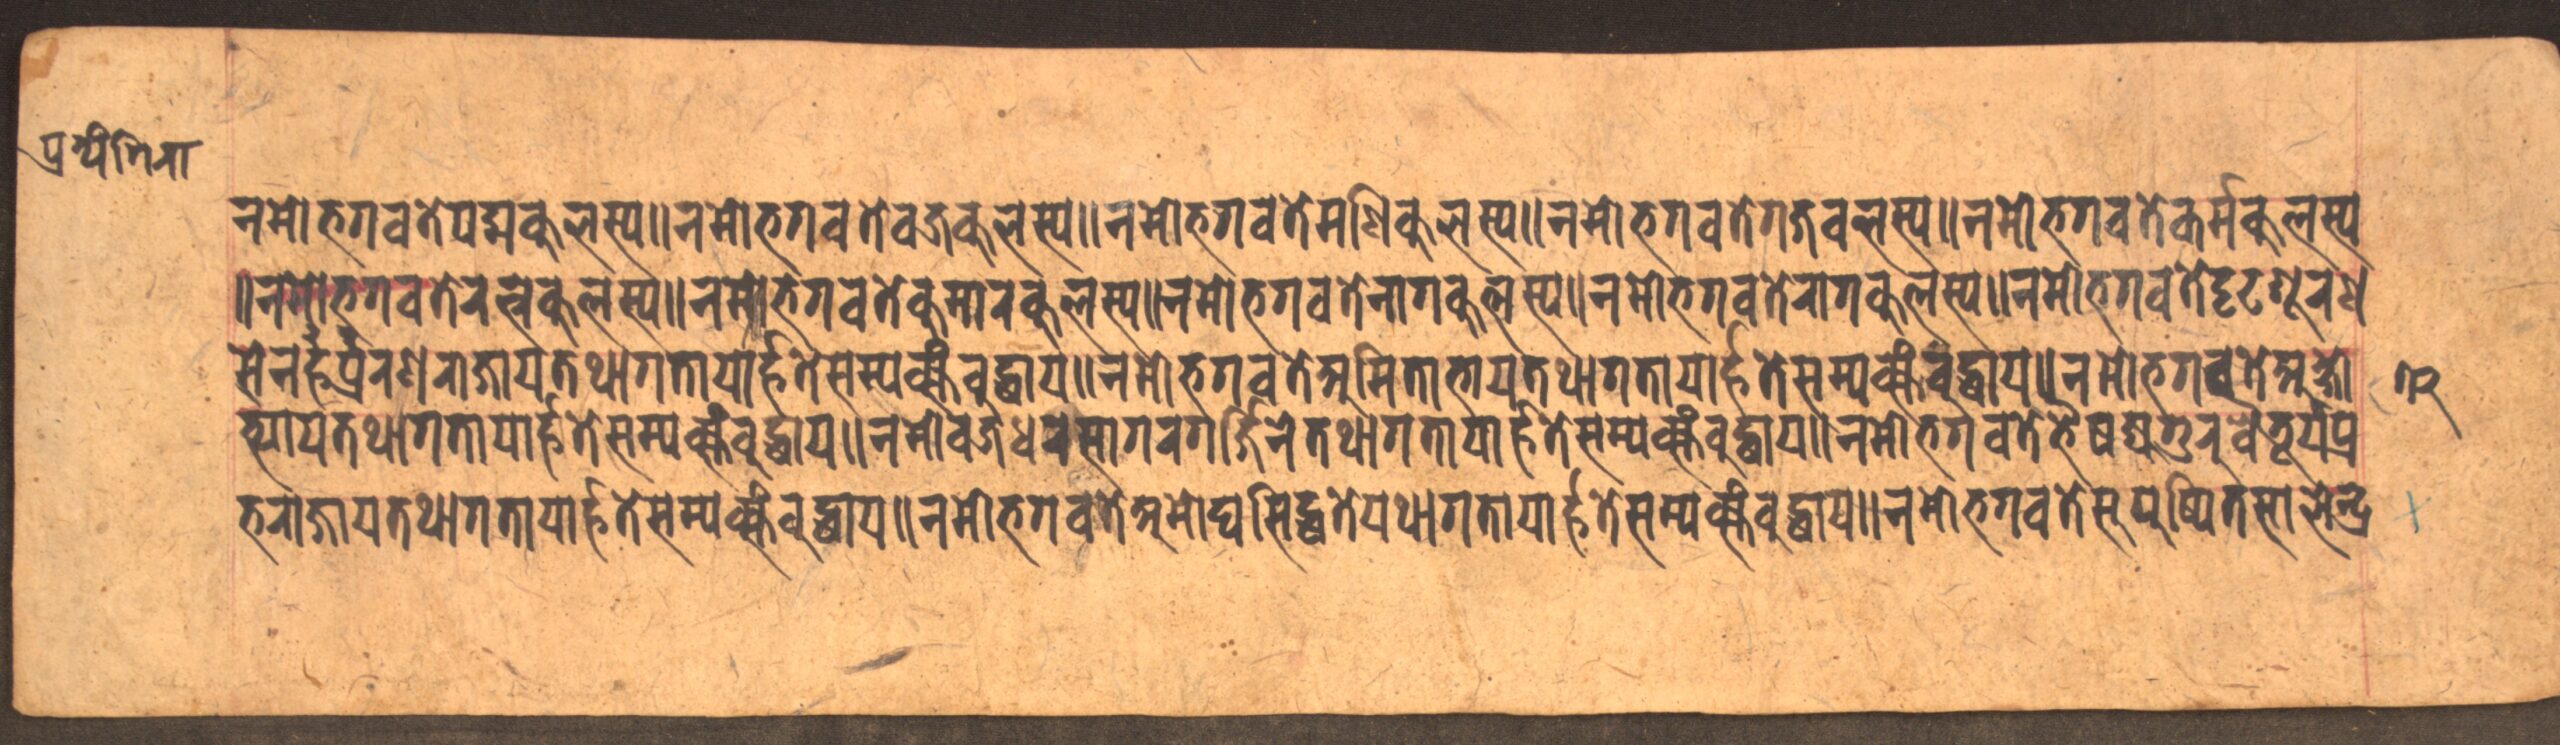 प्रत्यंगिरा
नमोभगवतेपद्मकुलस्य॥नमोभगवतेवज्रकुलस्य॥नमोभगवतेमणिकुलस्य॥नमोभगवतेगजवलस्य॥नमोभगवतेकर्मकुलस्य
॥नमोभगवतेरत्नकुलस्य॥नमोभगवतेकुमारकुलस्य॥नमोभगवतेनागकुलस्य॥नमोभगवतेरागकुलस्य॥नमोभगवतेदृटशूरण
सेनर्हप्रंरणराजायतथागतायार्हतेसम्यक्संवुद्धाय॥नमोभगवतेअमिताभायतथागतायार्हतेसम्यक्संवुद्धाय॥नमोभगवतेअक्षो
भ्यायतथागतायार्हतेसम्यक्संवुद्धाय॥नमोवज्रधरसागरगर्ज्जिनेतथागतायार्हतेसम्यक्संवुद्धाय॥नमोभगवतेभैषज्यगुरुवैतूर्यप्र
भराजायतथागतायार्हतेसम्यक्संवुद्धाय॥नमोभगवतेअमोघसिद्धतेयथागतायार्हतेसम्यक्संवुद्धाय॥नमोभगवतेसुपुष्पितसालेन्द्र